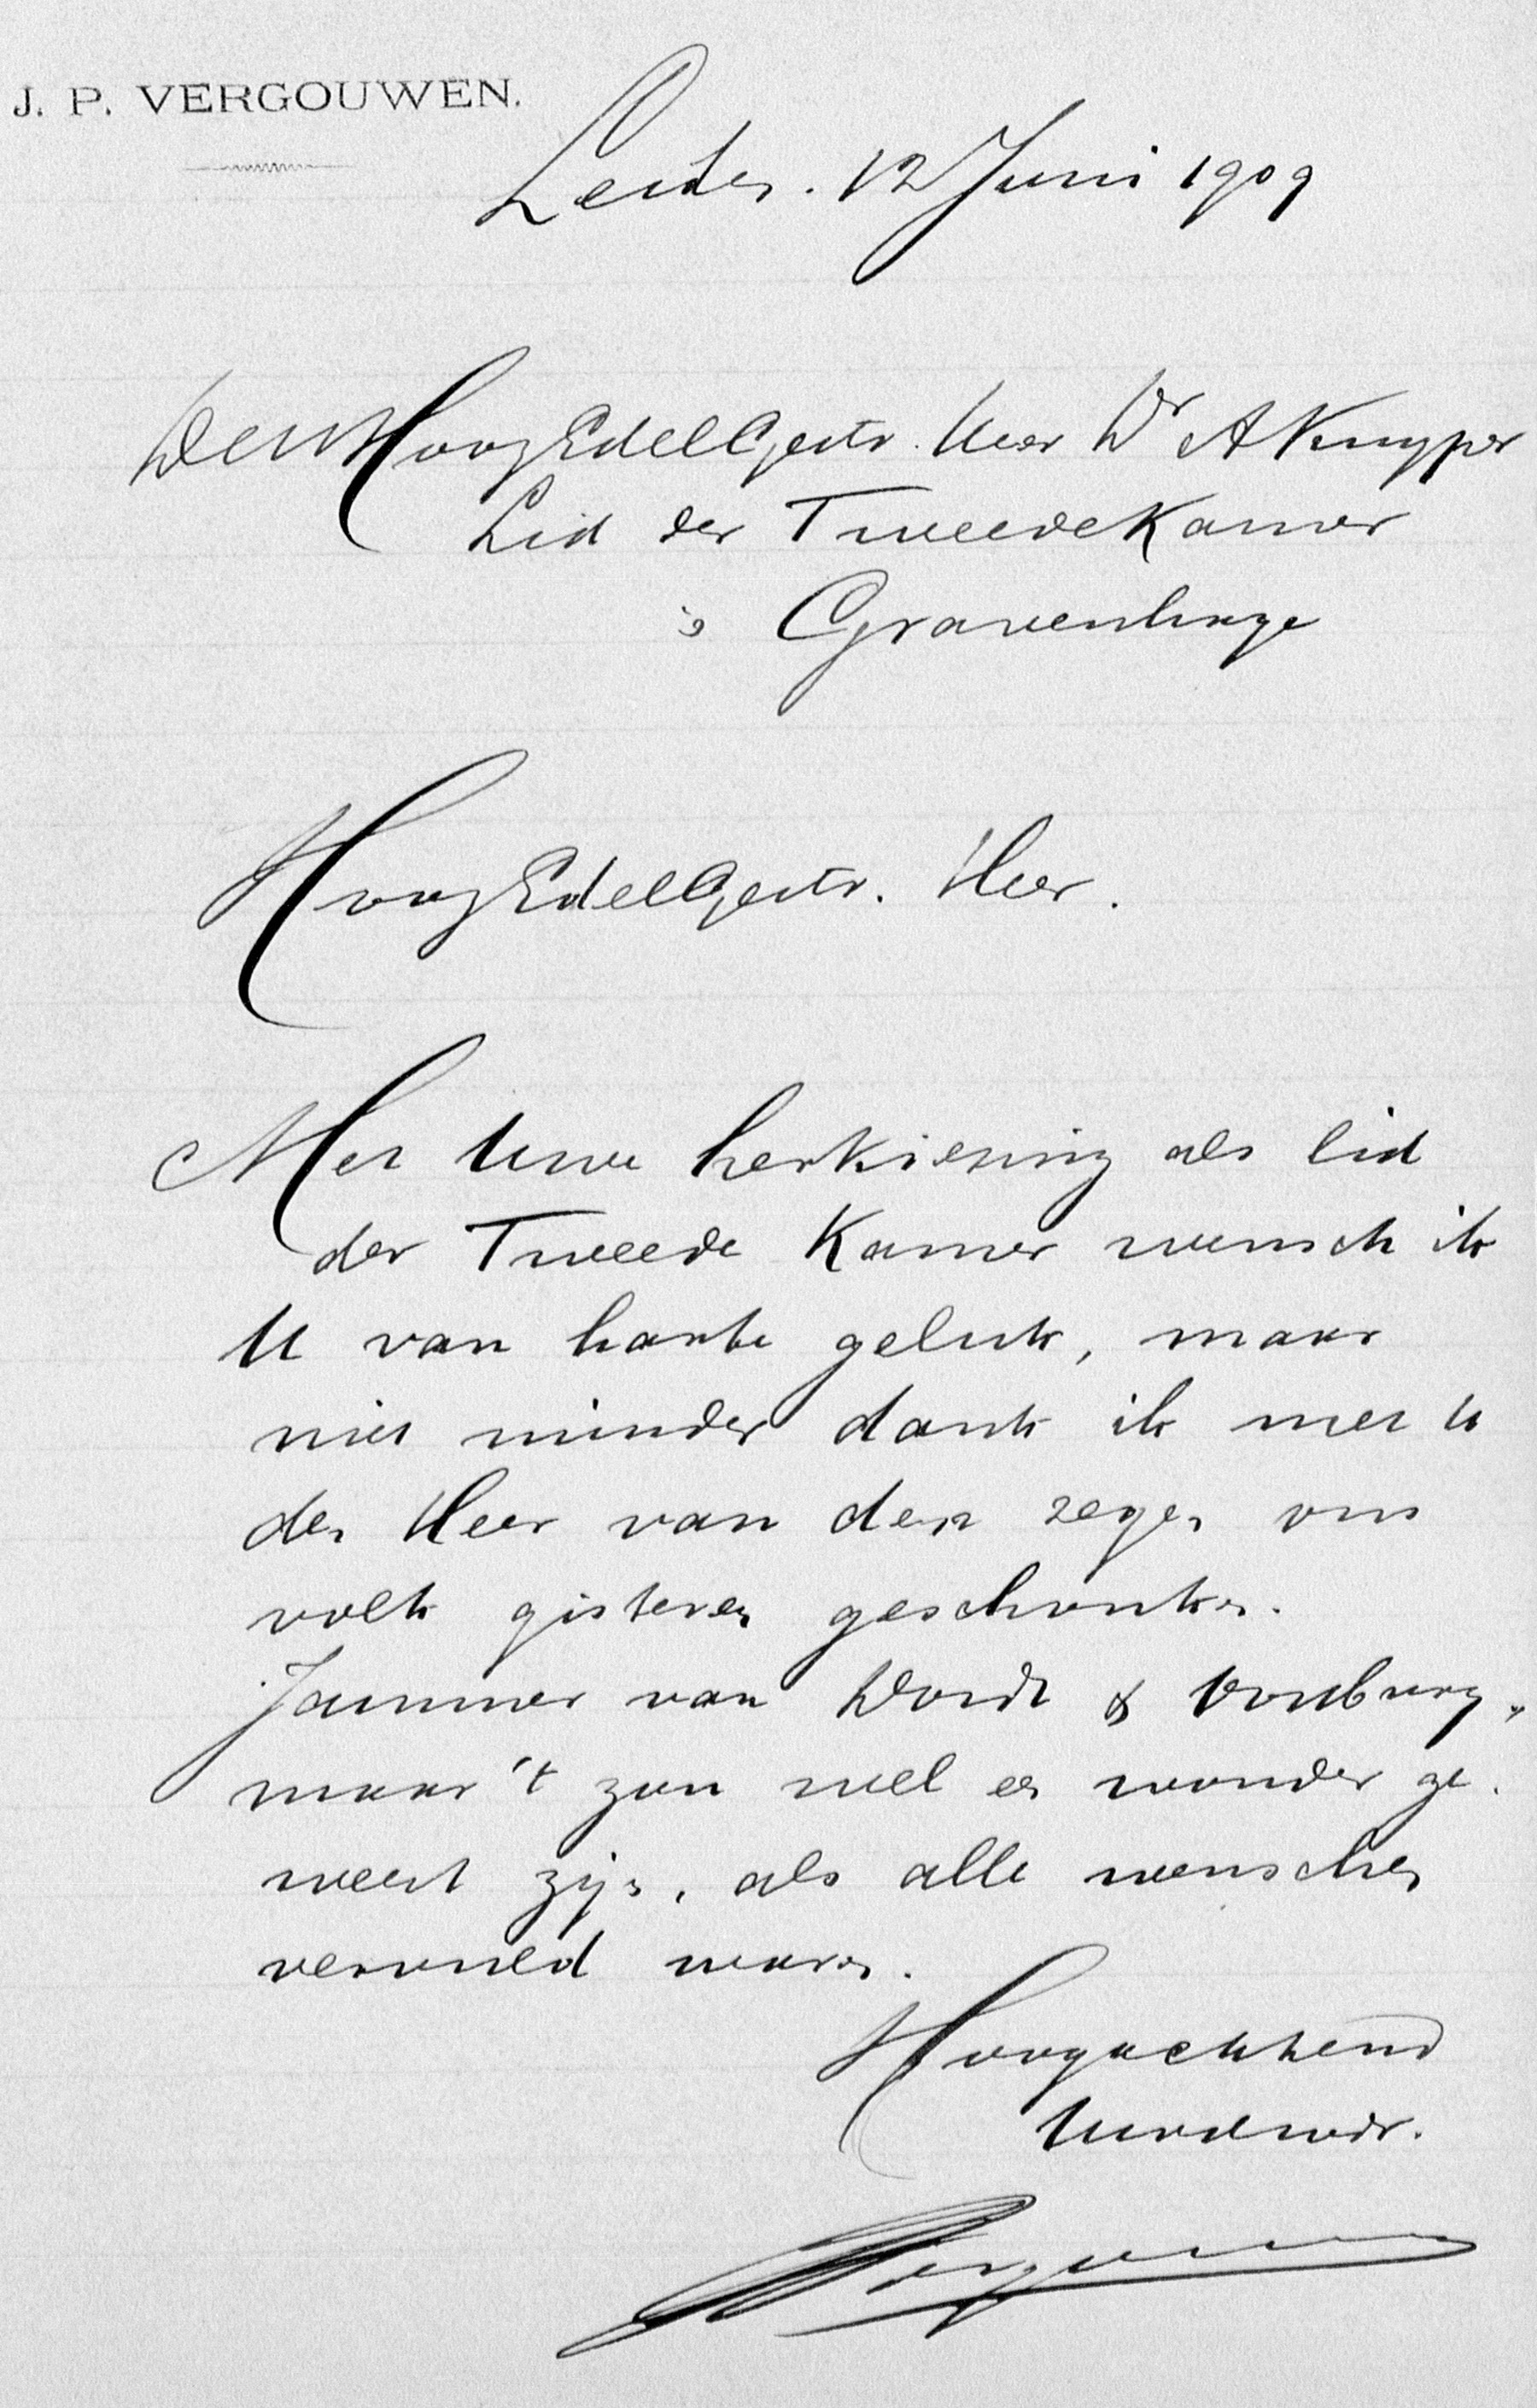 J. P. VERGOUWEN.
Leiden. 12 Juni 1909
Den HoogEdelGestr. Heer Dr A Kuyper
Lid der Tweede Kamer
's Gravenhage
HoogEdelGestr. Heer.
Met Uwe herkiezing als lid
der Tweede Kamer wensch ik
U van harte geluk, maar
niet minder dank ik met U
den Heer van den zegen ons
volk gisteren geschonken.
Jammer van Dordt &
maar 't zou wel een wonder ge-
weest zijn, als alle wenschen
vervuld waren.
Hoogachtend
Uwdwdr.
Vergouwen